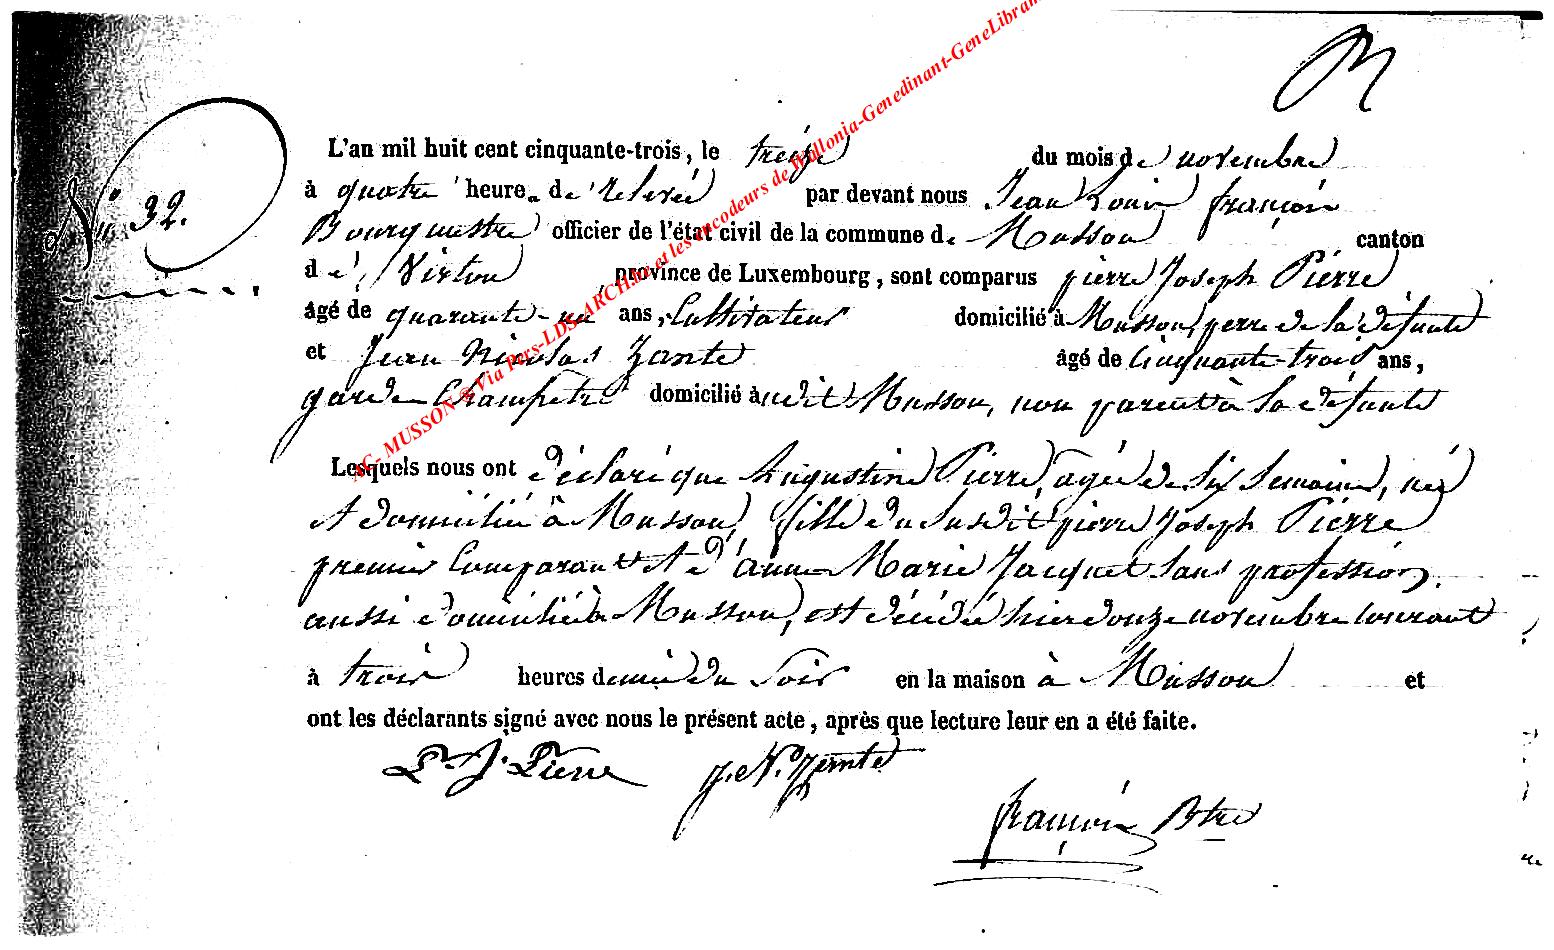 N° 32.
L'an mil huit cent cinquante-trois, le treize du mois de novembre
à quatre heures de relevée par devant nous Jean Louis françois
Bourgmestre officier de l'état civil de la commune de Musson canton
de Virton province de Luxembourg, sont comparus pierre Joseph Pierre
âgé de quarante-un ans, Cultivateur domicilié à Musson, perre de la défunte
et Jean Nicolas Zante âgé de Cinquante-trois ans,
garde Champetre domicilié audit Musson, non parent à la défunte
Lesquels nous ont déclaré que Augustine Pierre, agée de six semaines, née
et domiciliée à Musson, fille du susdit pierre Joseph Pierre
premier Comparant et d'anne Marie Jacquet sans profession,
aussi domiciliée à Musson, est décédée hier douze novembre courant
à trois heures demie du Soir en la maison à Musson et
ont les déclarants signé avec nous le présent acte, après que lecture leur en a été faite.
P. J. Pierre
J. N. Zernte
françois Btre
AC- MUSSON @ Via Pers-LDS-ARCH.be et les encodeurs de Wallonia-Genedinant-GeneLibran